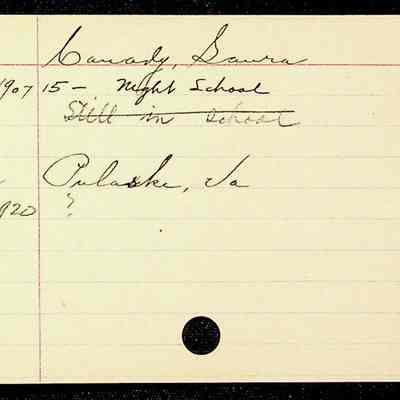 Canady, Laura
1907 15 – Night School
Still in school
Pulaske, Va
1920 ?